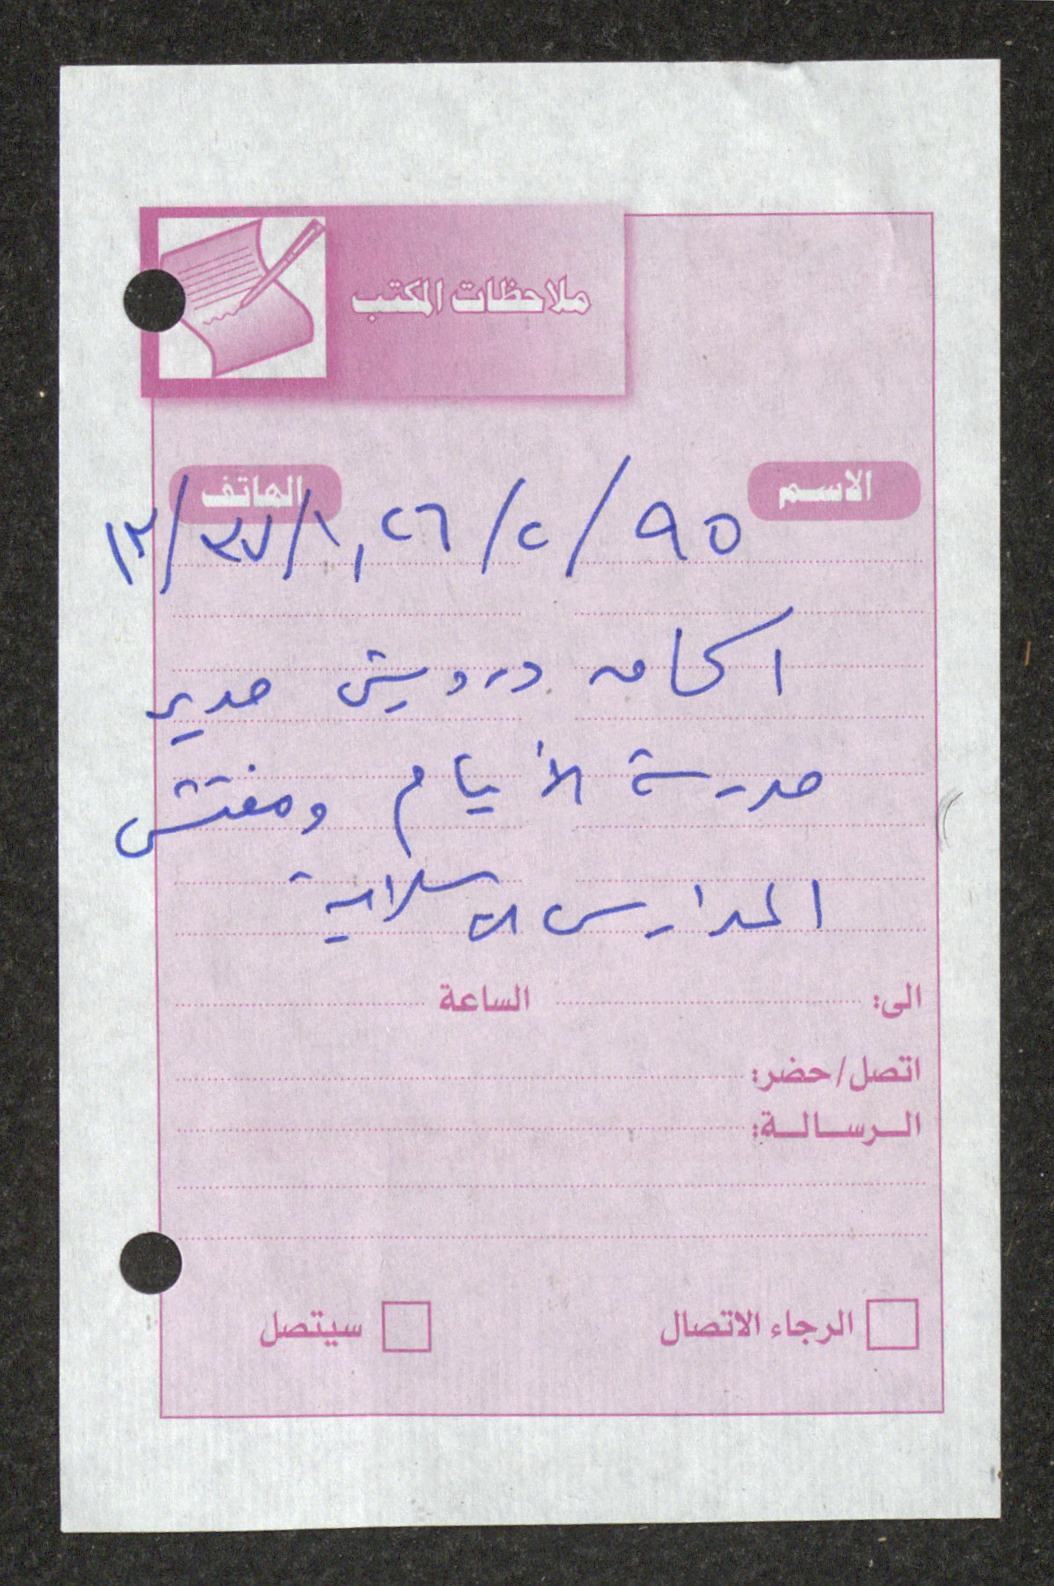 ملاحظات المكتب
الاسم
الهاتف
٩٥ / ٢ / ١,٢٦ / ٣٧ / ١٣
درويش مدير
مدرسة الأيتام ومفتش
المدارس الاسلامية
الى: الساعة
اتصل/حضر:
الرسالة:
الرجاء الاتصال سيتصل